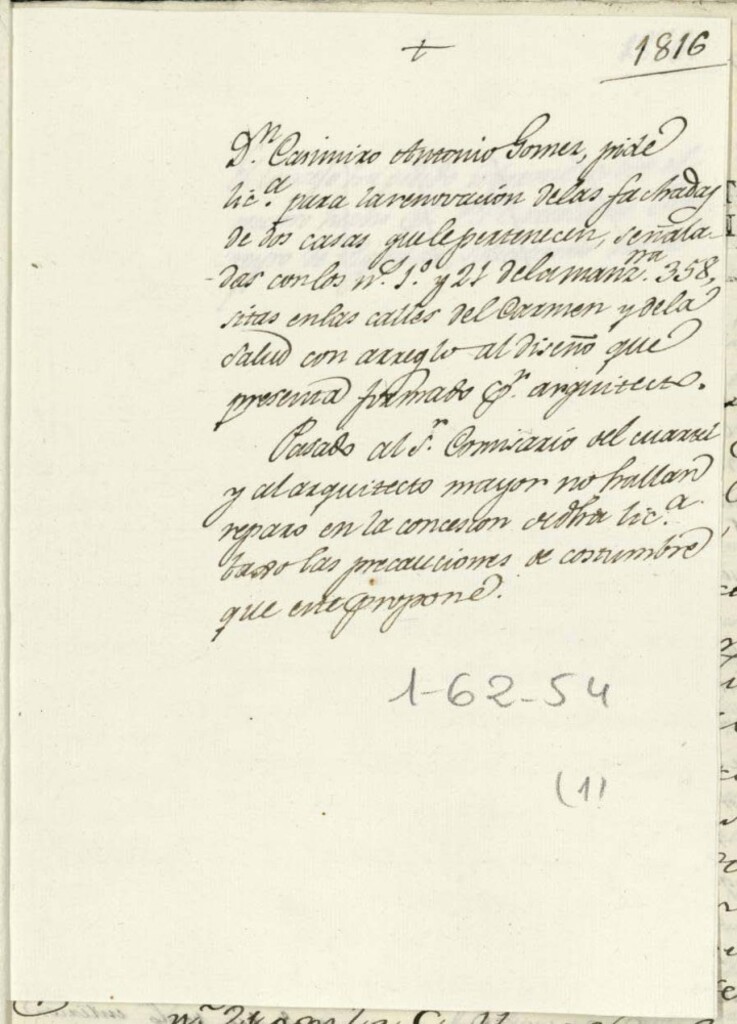 +
1816
Dn. Casimiro Antonio Gomez, pide
lic.a para la renovación de las fachadas
de dos casas que le pertenecen, señala-
das con los n.s 1.º y 21 de la manz.na 358,
sitas en las calles del Carmen y de la
Salud con arreglo al diseño que
presenta firmado p.r arquitecto.
Pasado al S.r Comisario del cuartel
y al arquitecto mayor no hallan
reparo en la concesion de dha lic.a
baxo las precauciones de costumbre
que este propone.
1-62-54
(1)